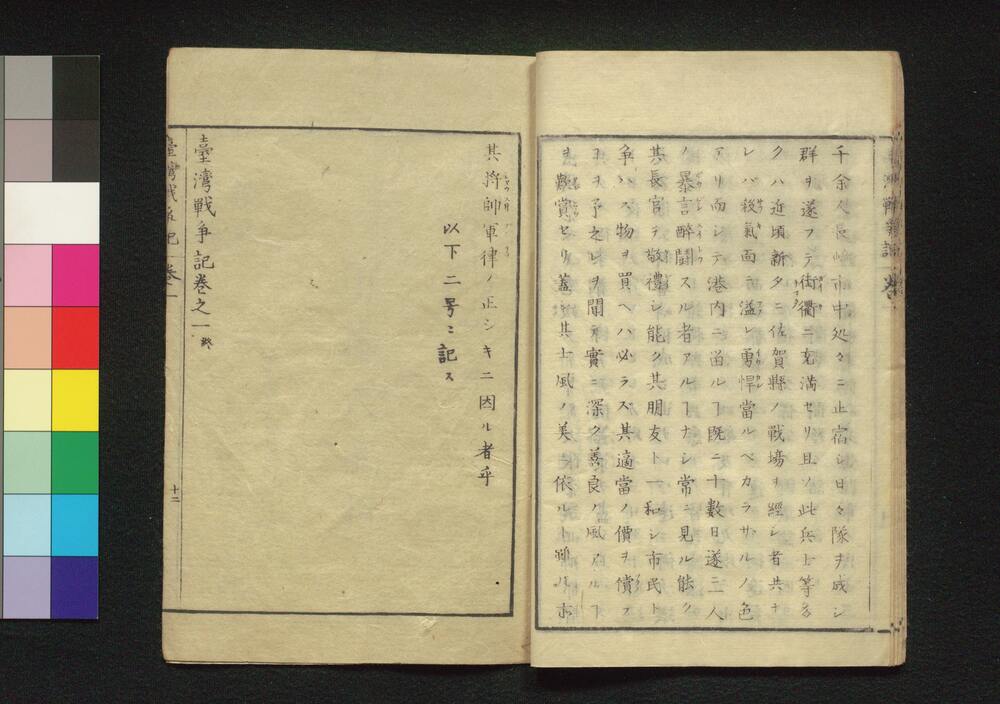 千余人長崎市中処々ニ止宿シ日々隊ヲ成シ
群ヲ遂フテ街衢ニ充満セリ且ツ此兵士等多
クハ近頃新タニ佐賀縣ノ戦場ヲ經シ者共ナ
レバ殺氣面ニ溢レ勇悍當ルベカラサルノ色
アリ而シテ港内ニ畄ルヿ既ニ十數日遂ニ一人
ノ暴言醉鬪スル者アルヿナシ常ニ見ル能ク
其長官ヲ敬禮シ能ク其朋友ト一和シ市民ト
争ハス物ヲ買ヘハ必ラズ其適當ノ價ヲ償フ
ヿヲ予之レヲ聞テ實ニ深ク善良ノ風アルヿ
ヲ歎賞セリ蓋シ其士風ノ美ニ依ルト雖ルホ
其将帥軍律ノ正シキニ因ル者乎
以下二号ニ記ス
臺湾戦争記巻之一終
臺湾戦争記 巻一
十二